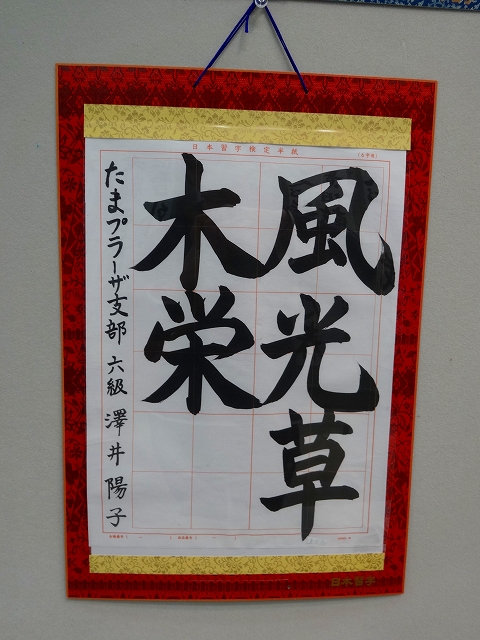 日本習字検定半紙
風光草
木栄
たまプラーザ支部 六級 澤井陽子
日本習字